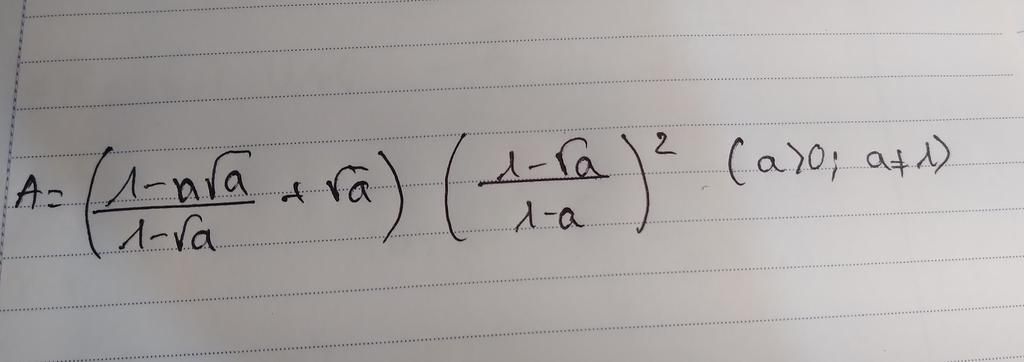 A = ( (1 - a√a)/(1 - √a) + √a ) ( (1 - √a)/(1 - a) )² (a > 0; a ≠ 1)